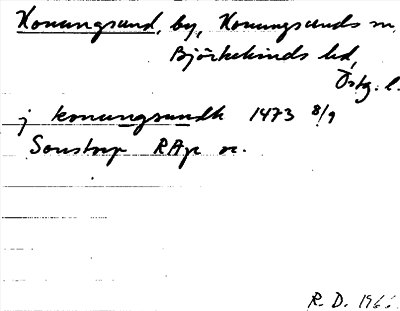 Konungsund, by, Konungsunds sn,
Björkekinds hd,
Östg. l.
j konungsundh 1473 8/9
Sonstorp RApr or.
R. D. 1966.